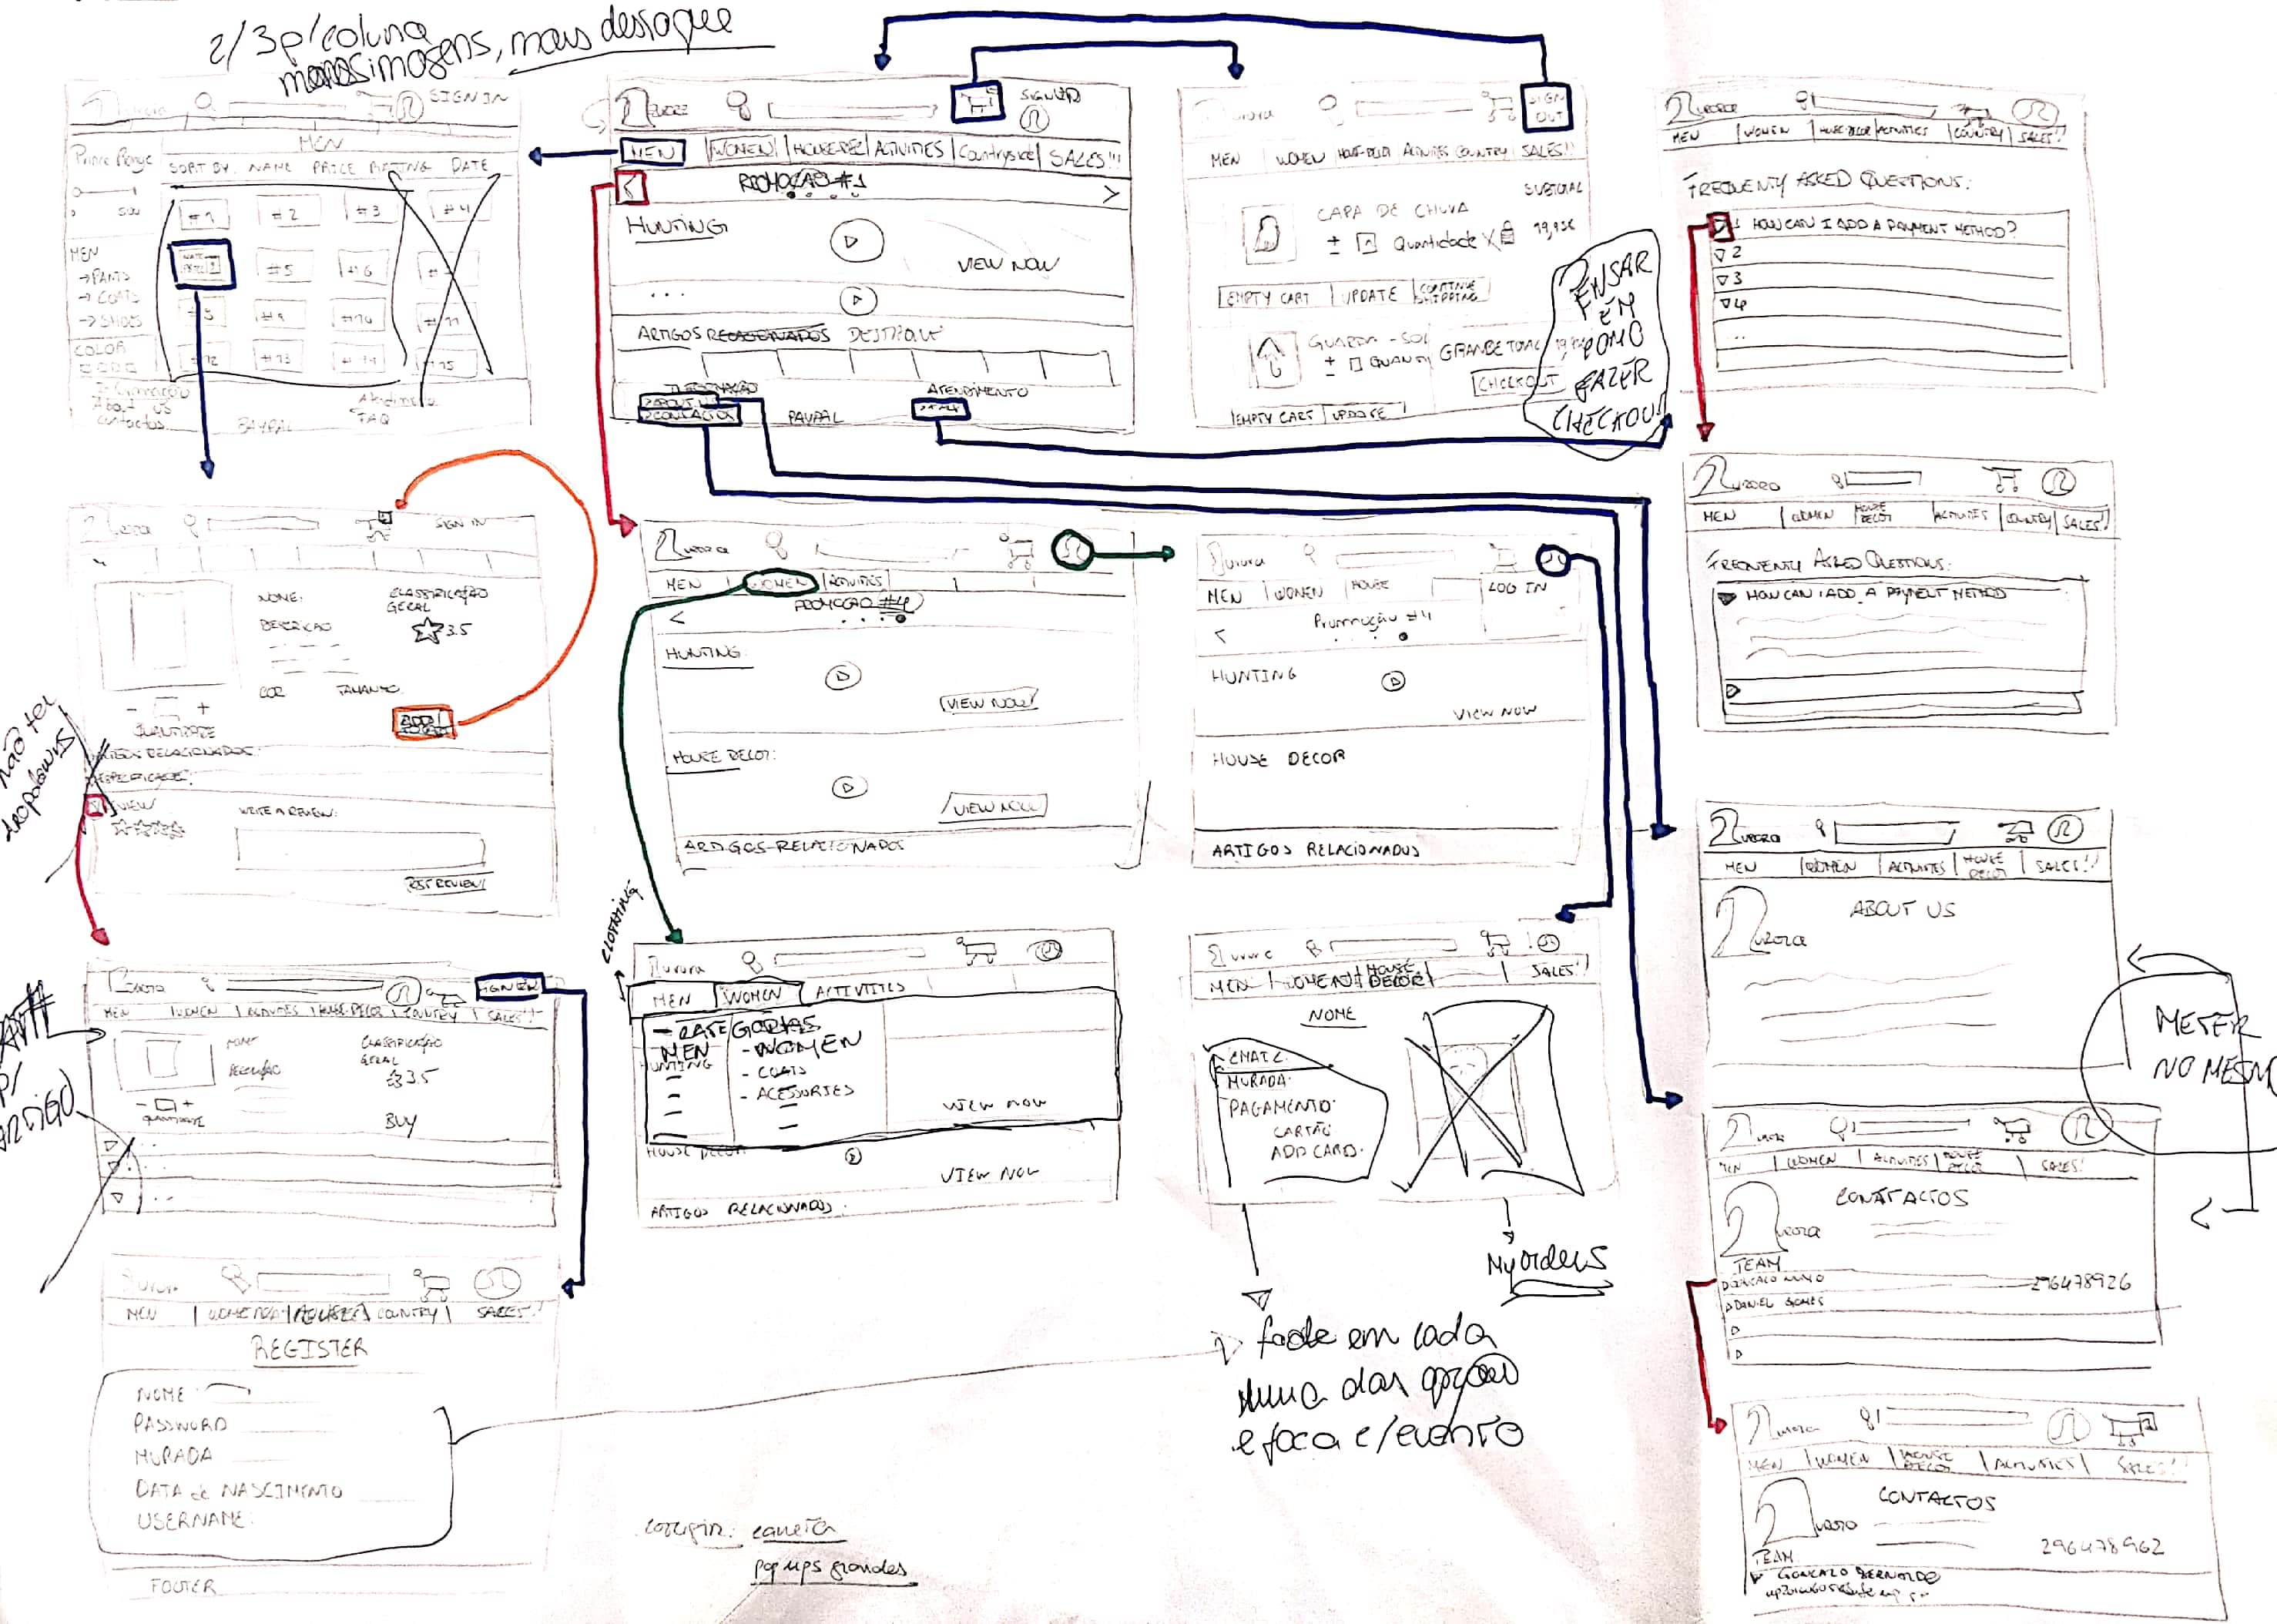 2/3 p/ coluna
menos imagens, mais destaque
SIGN IN
MEN
Price Range
SORT BY: NAME PRICE RATING DATE
0
500
#1
#2
#3
#4
#5
#6
MEN
→ PANTS
→ COATS
→ SHOES
COLOR
#9
#10
#11
#12
#13
#14
#15
Informação
About us
Contactos
PAYPAL
Atendimento
FAQ
MEN WOMEN HOUSE DEC ACTIVITIES Countryside SALES!!!
PROMOÇÃO #1
>
HUNTING
VIEW NOW
...
ARTIGOS RELACIONADOS DESTAQUE
INFORMAÇÃO
> ABOUT US
> CONTACTOS
PAYPAL
ATENDIMENTO
Aurora
SIGN OUT
MEN WOMEN HOUSE-DECOR ACTIVITIES COUNTRY SALES!!
SUBTOTAL
CAPA DE CHUVA
± Quantidade X
19,95€
EMPTY CART UPDATE CONTINUE SHIPPING
GUARDA-SOL
GRANDE TOTAL
CHECKOUT
EMPTY CART UPDATE
PENSAR
EM
COMO
FAZER
CHECKOUT
MEN WOMEN HOUSE-DECOR ACTIVITIES COUNTRY SALES!!
FREQUENTLY ASKED QUESTIONS:
1 HOW CAN I ADD A PAYMENT METHOD?
2
3
4
..
SIGN IN
NOME:
CLASSIFICAÇÃO
GERAL
DESCRICAO
3.5
COR TAMANHO
- +
QUANTIDADE
ARTIGOS RELACIONADOS:
REVIEW
WRITE A REVIEW:
POST REVIEW
não ter
dropdowns
MEN WOMEN ACTIVITIES
PROMOÇÃO #4
<
HUNTING
VIEW NOW
HOUSE DECOR:
VIEW NOW
ARTIGOS RELACIONADOS
Aurora
MEN WOMEN HOUSE
LOG IN
Promoção #4
<
HUNTING
VIEW NOW
HOUSE DECOR
ARTIGOS RELACIONADOS
MEN WOMEN HOUSE DECOR ACTIVITIES COUNTRY SALES!!
FREQUENTLY ASKED QUESTIONS:
HOW CAN I ADD A PAYMENT METHOD
SIGN IN
MEN WOMEN ACTIVITIES HOUSE-DECOR COUNTRY SALES!!
NOME
CLASSIFICAÇÃO
GERAL
3.5
- +
QUANTIDADE
BUY
P/
ARTIGO
CLOTHING
Aurora
MEN WOMEN ACTIVITIES
- CATEGORIAS
MEN - WOMEN
HUNTING
- COATS
- ACESSORIES
VIEW NOW
HOUSE DECOR
VIEW NOW
ARTIGOS RELACIONADOS
Aurora
MEN WOMEN HOUSE DECOR SALES!!
NOME
EMAIL
MORADA
PAGAMENTO
CARTÃO
ADD CARD
My orders
fade em cada
uma das opções
e foca c/ evento
MEN WOMEN ACTIVITIES HOUSE DECOR SALES!!
ABOUT US
METER
NO MESMO
MEN WOMEN ACTIVITIES HOUSE DECOR SALES!
CONTACTOS
TEAM
296478926
DANIEL GOMES
Aurora
MEN COUNTRY SALES!!
REGISTER
NOME
PASSWORD
MORADA
DATA de NASCIMENTO
USERNAME:
FOOTER
corrigir: caneta
pop ups grandes
MEN WOMEN HOUSE DECOR ACTIVITIES SALES!!
CONTACTOS
296478962
TEAM